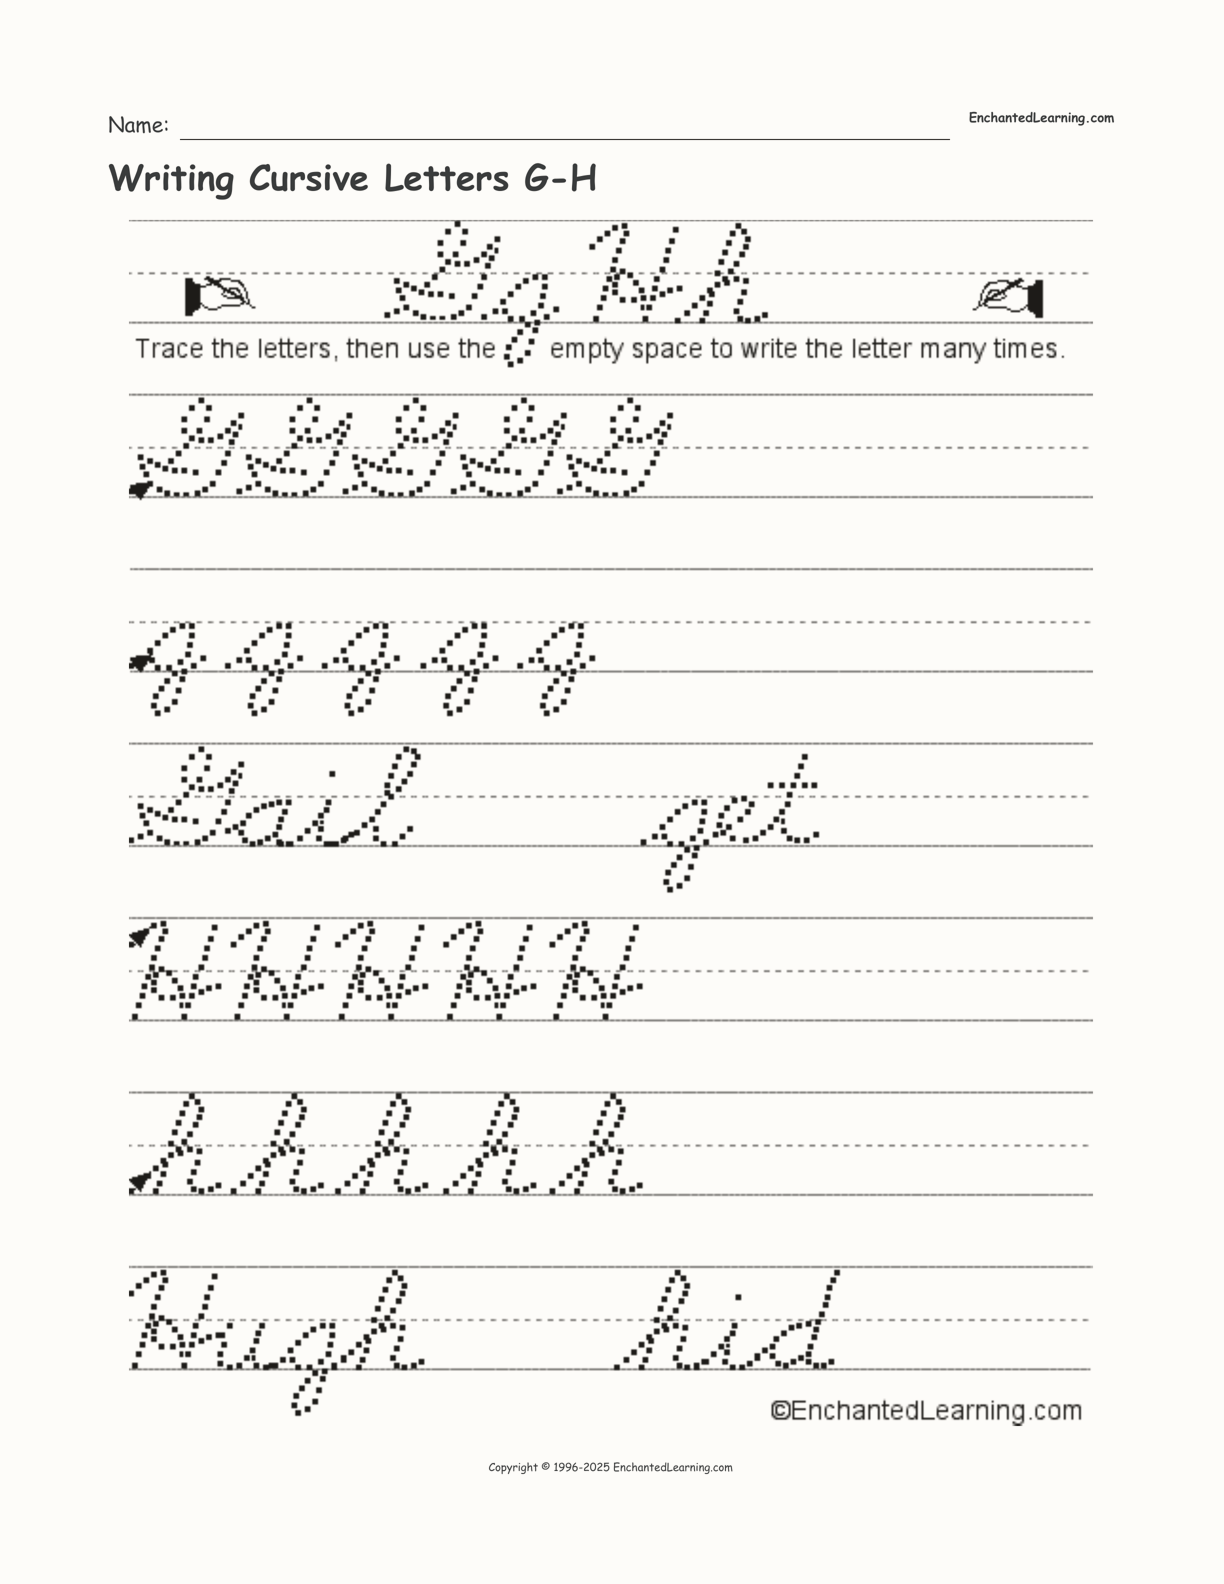 Name:
EnchantedLearning.com
Writing Cursive Letters G-H
Gg Hh
Trace the letters, then use the empty space to write the letter many times.
G G G G G
g g g g g
Gail get
H H H H H
h h h h h
Hugh hid
©EnchantedLearning.com
Copyright © 1996-2025 EnchantedLearning.com